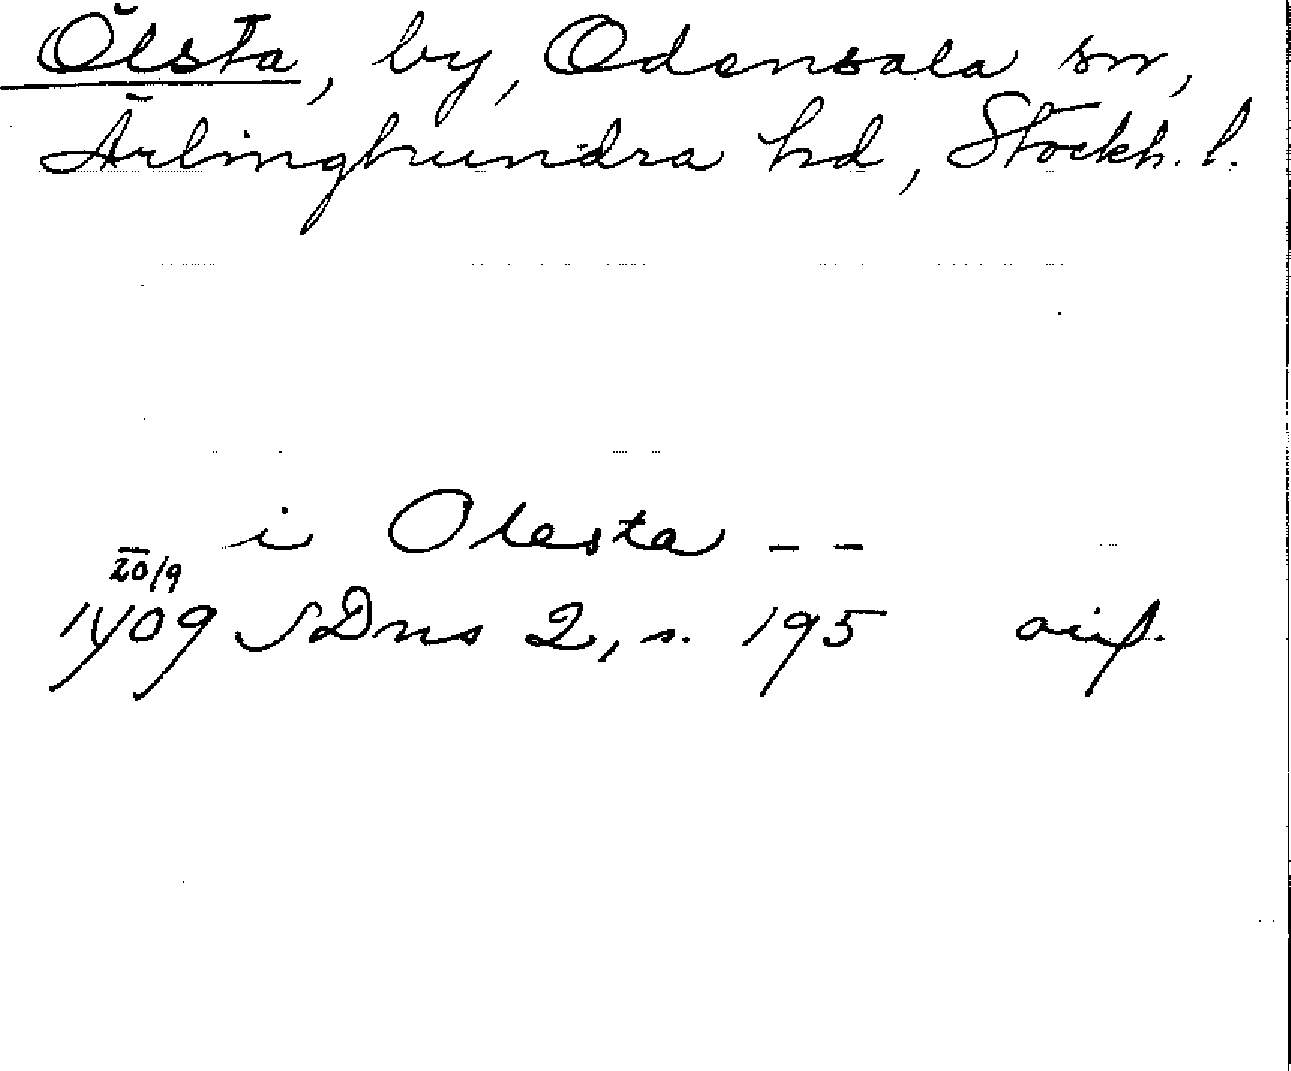 Ölsta, by, Odensala sn,
Ärlinghundra hd, Stockh. l.
i Olesta – –
20/9
1409 SDns 2, s. 195 avf.